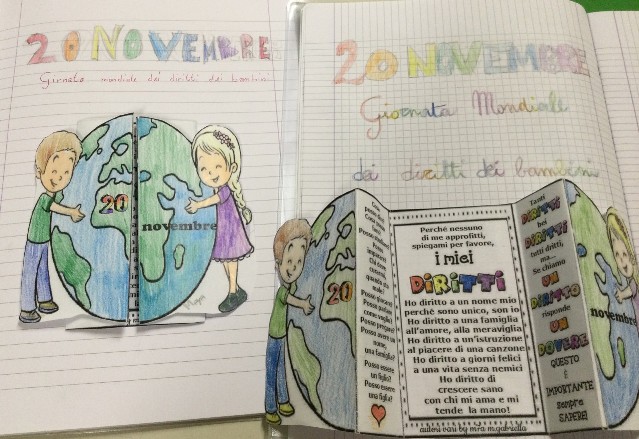 20 NOVEMBRE
Giornata mondiale dei diritti dei bambini
20
novembre
20 NOVEMBRE
Giornata Mondiale
dei diritti dei bambini
20
una famiglia?
Posso essere
un figlio?
Posso essere
una figlia?
Perchè nessuno
di me approfitti,
spiegami per favore,
i miei
DIRITTI
Ho diritto a un nome mio
perchè sono unico, son io
Ho diritto a una famiglia
all'amore, alla meraviglia
Ho diritto a un'istruzione
al piacere di una canzone
Ho diritto a giorni felici
a una vita senza nemici
Ho diritto di
crescere sano
con chi mi ama e mi
tende la mano!
autori vari by mra m.gabriella
Tanti
DIRITTI
bei
DIRITTI
tutti dritti,
ma...
Se chiamo
UN
DIRITTO
risponde
UN
DOVERE
QUESTO
È
IMPORTANTE
sempre
SAPERE!
novembre